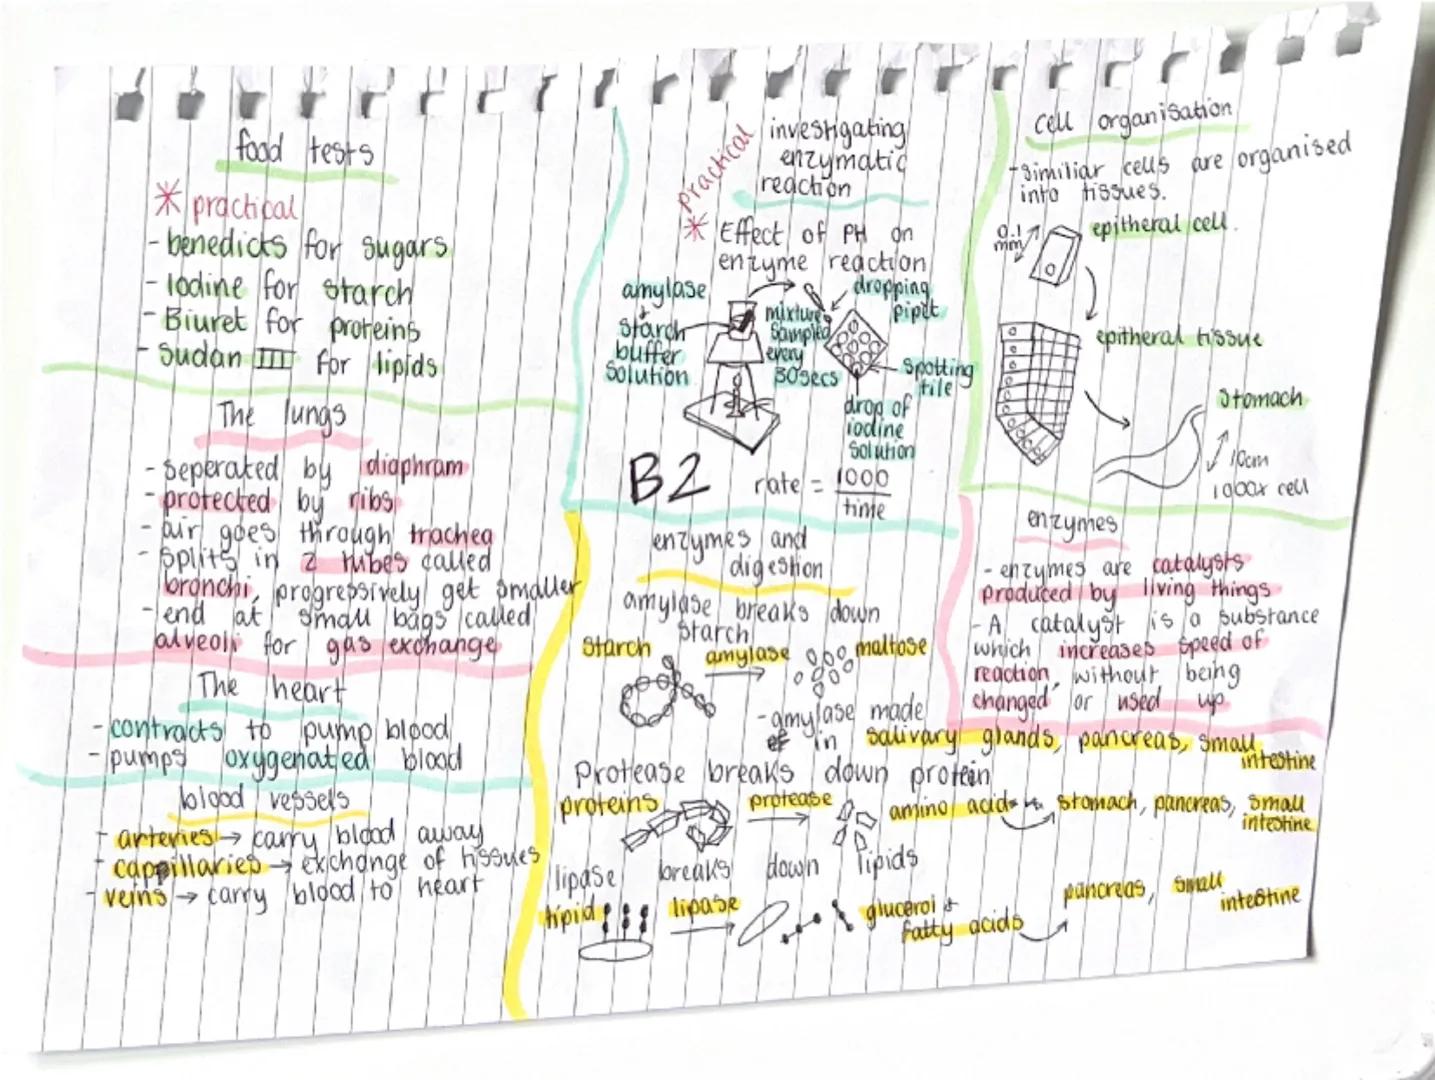 food tests
* practical
- benedicts for sugars
- Iodine for starch
- Biuret for proteins
- Sudan III for lipids
The lungs
- seperated by diaphram
- protected by ribs
- air goes through trachea
- splits in 2 tubes called
bronchi, progressively get smaller
- end at small bags called
alveoli for gas exchange
The heart
- contracts to pump blood
- pumps oxygenated blood
blood vessels
- arteries → carry blood away
- cappillaries → exchange of tissues
- veins → carry blood to heart
practical
investigating
enzymatic
reaction
* Effect of PH on
enzyme reaction
amylase
+
starch
buffer
solution
mixture
sampled
every
30secs
dropping
pipet
spotting
tile
drop of
iodine
solution
B2
rate = 1000
time
enzymes and
digestion
amylase breaks down
starch
starch
amylase
maltose
- amylase made
in salivary glands, pancreas, small
intestine
Protease breaks down protein
proteins
protease
amino acids
stomach, pancreas, small
intestine
lipase breaks down lipids
lipid
lipase
glucerol +
fatty acids
pancreas, small
intestine
cell organisation
- similiar cells are organised
into tissues.
0.1
mm
epitheral cell.
epitheral tissue
stomach
10cm
1000x cell
enzymes
- enzymes are catalysts
produced by living things
- A catalyst is a substance
which increases speed of
reaction, without being
changed or used up